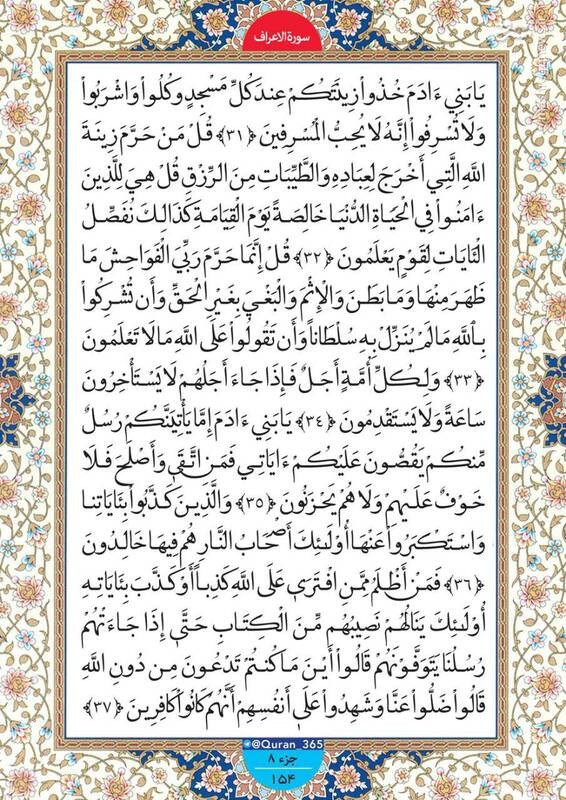 سورة الاعراف
يَابَنِي ءَادَمَ خُذُواْ زِينَتَكُمْ عِندَ كُلِّ مَسْجِدٍ وكُلُواْ وَاشْرَبُواْ
وَلاَ تُسْرِفُواْ إِنَّهُ لاَ يُحِبُّ الْمُسْرِفِينَ ﴿٣١﴾ قُلْ مَنْ حَرَّمَ زِينَةَ
اللَّهِ الَّتِي أَخْرَجَ لِعِبَادِهِ وَالْطَّيِّبَاتِ مِنَ الرِّزْقِ قُلْ هِي لِلَّذِينَ
ءَامَنُواْ فِي الْحَيَاةِ الدُّنْيَا خَالِصَةً يَوْمَ الْقِيَامَةِ كَذَالِكَ نُفَصِّلُ
الْئَايَاتِ لِقَوْمٍ يَعْلَمُونَ ﴿٣٢﴾ قُلْ إِنَّمَا حَرَّمَ رَبِّيَ الْفَوَاحِشَ مَا
ظَهَرَ مِنْهَا وَمَا بَطَنَ وَالإِثْمَ وَالْبَغْيَ بِغَيْرِ الْحَقِّ وَأَن تُشْرِكُواْ
بِاللَّهِ مَا لَمْ يُنَزِّلْ بِهِ سُلْطَاناً وَأَن تَقُولُواْ عَلَى اللَّهِ مَا لاَ تَعْلَمُونَ
﴿٣٣﴾ وَلِكُلِّ أُمَّةٍ أَجَلٌ فَإِذَا جَاءَ أَجَلُهُمْ لاَ يَسْتَأْخِرُونَ
سَاعَةً وَلاَ يَسْتَقْدِمُونَ ﴿٣٤﴾ يَابَنِي ءَادَمَ إِمَّا يَأْتِيَنَّكُمْ رُسُلٌ
مِّنكُمْ يَقُصُّونَ عَلَيْكُمْ ءَايَاتِي فَمَنِ اتَّقَى وَأَصْلَحَ فَلاَ
خَوْفٌ عَلَيْهِمْ وَلاَ هُمْ يَحْزَنُونَ ﴿٣٥﴾ وَالَّذِينَ كَذَّبُواْ بِئَايَاتِنَا
وَاسْتَكْبَرُواْ عَنْهَا أُوْلَئِكَ أَصْحَابُ النَّارِ هُمْ فِيهَا خَالِدُونَ
﴿٣٦﴾ فَمَنْ أَظْلَمُ مِمَّنِ افْتَرَى عَلَى اللَّهِ كَذِباً أَوْ كَذَّبَ بِئَايَاتِهِ
أُوْلَئِكَ يَنَالُهُمْ نَصِيبُهُم مِّنَ الْكِتَابِ حَتَّى إِذَا جَاءَتْهُمْ
رُسُلُنَا يَتَوَفَّوْنَهُمْ قَالُواْ أَيْنَ مَا كُنتُمْ تَدْعُونَ مِن دُونِ اللَّهِ
قَالُواْ ضَلُّواْ عَنَّا وَشَهِدُواْ عَلَى أَنفُسِهِمْ أَنَّهُمْ كَانُواْ كَافِرِينَ ﴿٣٧﴾
@Quran_365
جزء ٨
١٥٤